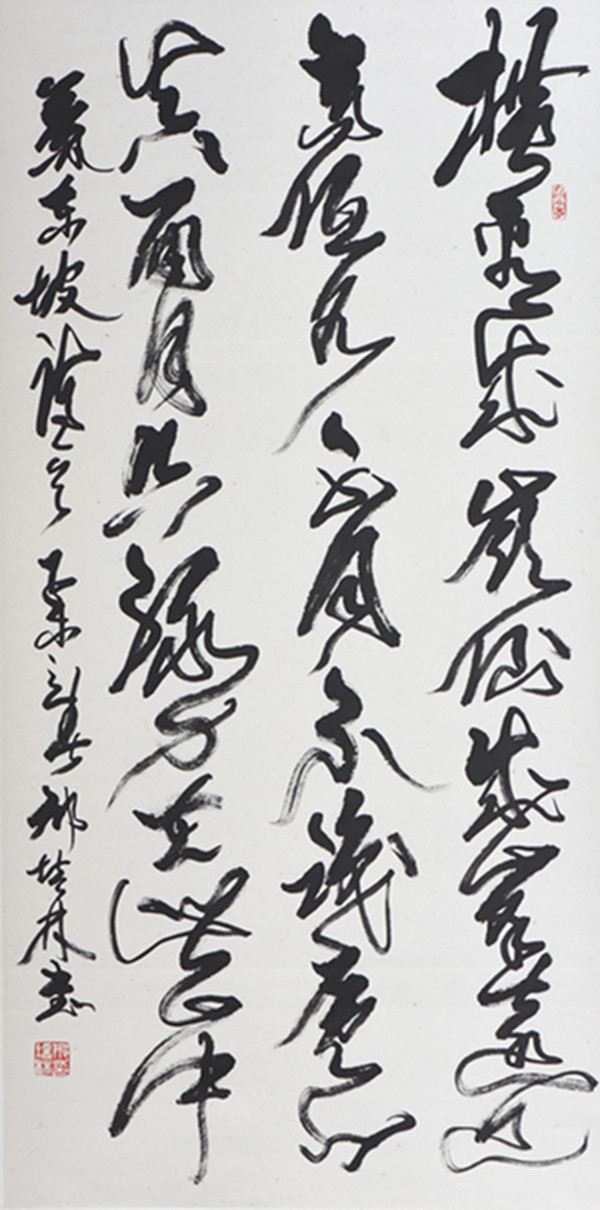 橫看成嶺側成峯遠近
高低各不同不識廬山
真面目只緣身在此山中
蘇東坡詩一首 培林書